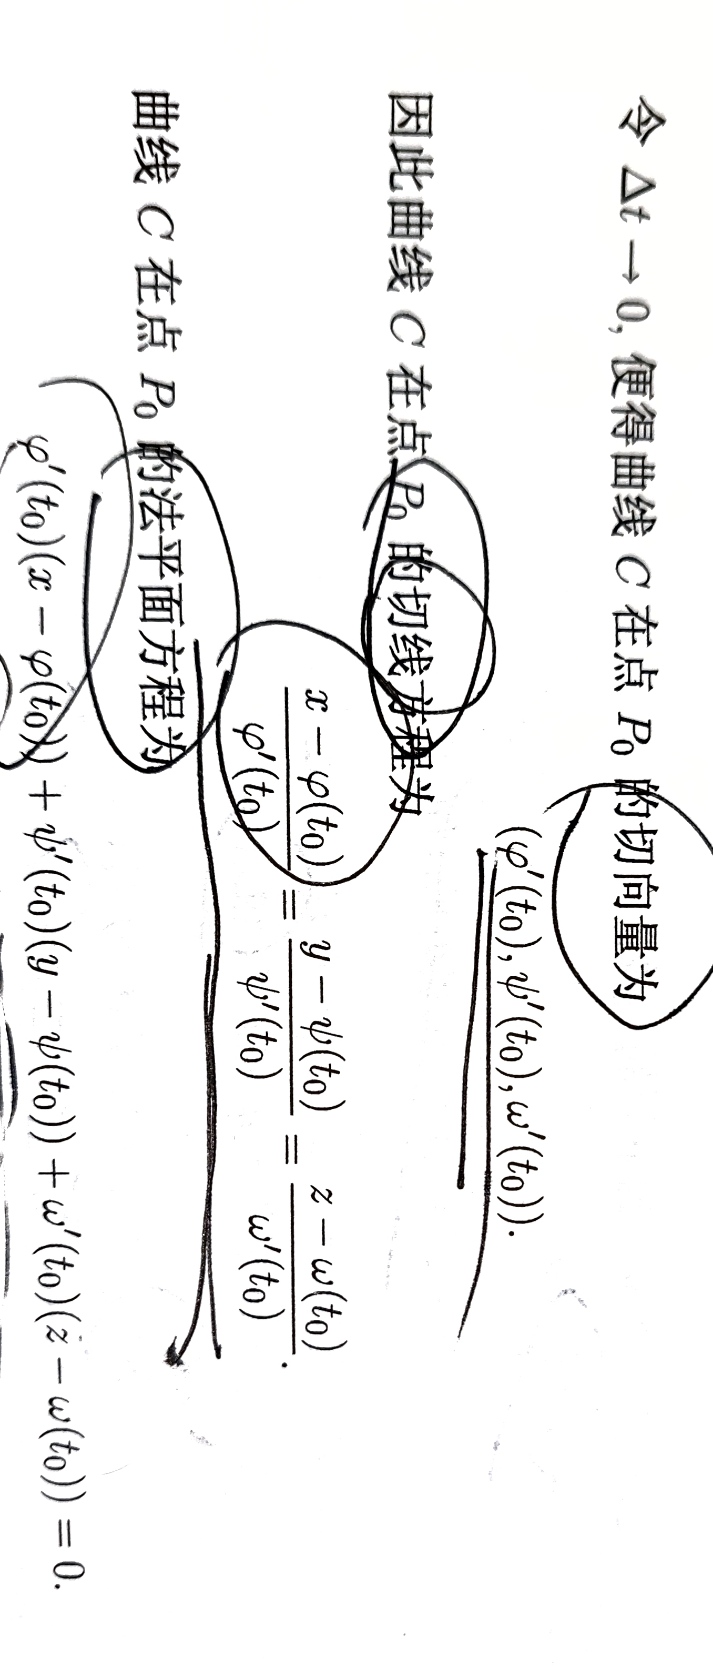 令 Δt → 0, 便得曲线 C 在点 P₀ 的切向量为
(φ′(t₀), ψ′(t₀), ω′(t₀)).
因此曲线 C 在点 P₀ 的切线方程为
(x − φ(t₀))/φ′(t₀) = (y − ψ(t₀))/ψ′(t₀) = (z − ω(t₀))/ω′(t₀).
曲线 C 在点 P₀ 的法平面方程为
φ′(t₀)(x − φ(t₀)) + ψ′(t₀)(y − ψ(t₀)) + ω′(t₀)(z − ω(t₀)) = 0.